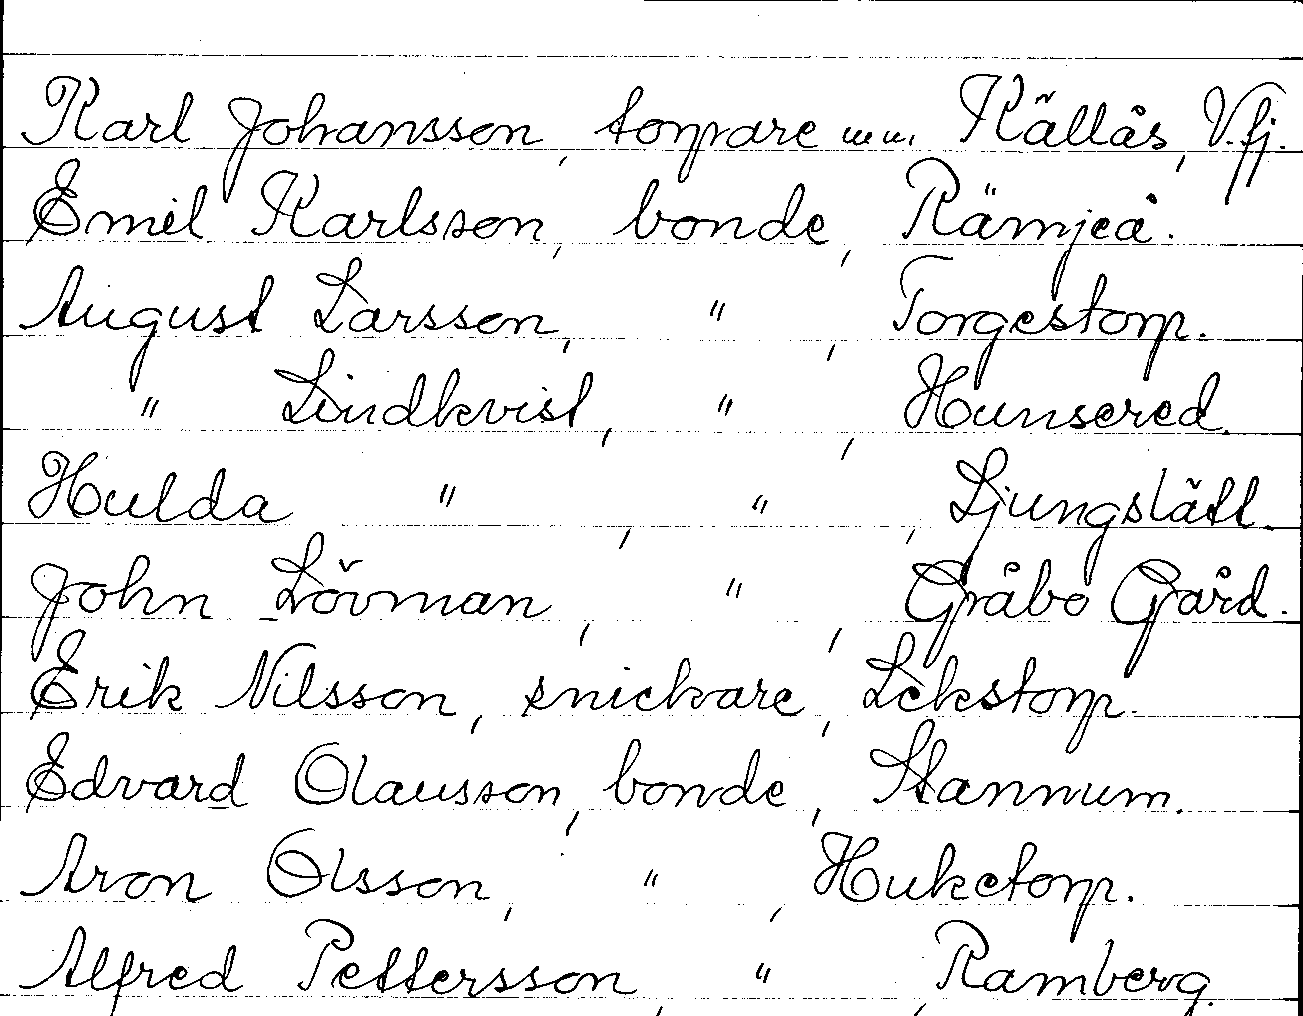 Karl Johansson, torpare m.m. Källås, V.fj.
Emil Karlsson, bonde, Rämjeå.
August Larsson, " , Torgestorp.
" Lindkvist, " , Hunsered.
Hulda " , " , Ljungslätt.
John Lövman, " , Gråbo Gård.
Erik Nilsson, snickare, Lekstorp.
Edvard Olausson, bonde, Stannum.
Aron Olsson, " , Huketorp.
Alfred Pettersson, " , Ramberg.